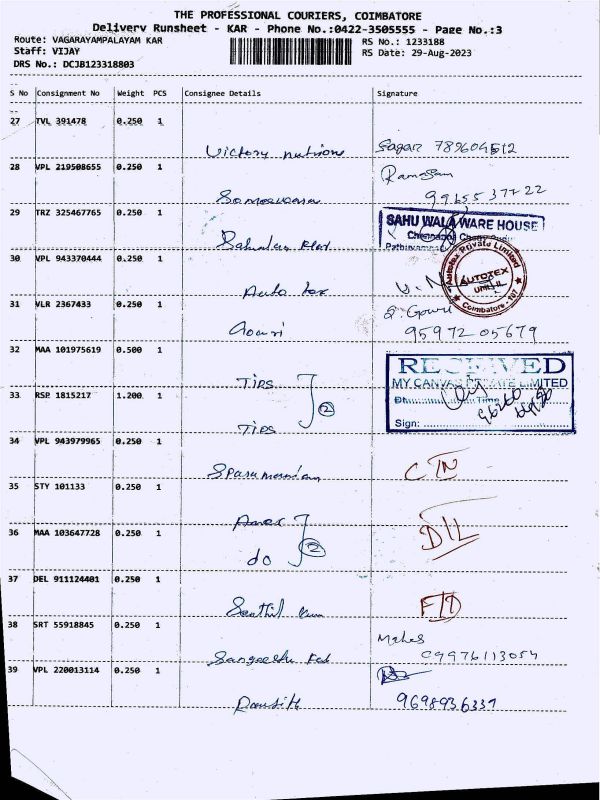 THE PROFESSIONAL COURIERS, COIMBATORE
Delivery Runsheet - KAR - Phone No.:0422-3505555 - Page No.:3
Route: VAGARAYAMPALAYAM KAR
Staff: VIJAY
DRS No.: DCJB123318803
RS No.: 1233188
RS Date: 29-Aug-2023
S No Consignment No Weight PCS Consignee Details Signature
27 TVL 391478 0.250 1
Victory
Sagar
28 VPL 219508655 0.250 1
99655 37722
29 TRZ 325467765 0.250 1
SAHU WALA WARE HOUSE
30 VPL 943370444 0.250 1
Auto tex
Autotex Private Limited
AUTOTEX
UNIT II
Coimbatore
31 VLR 2367433 0.250 1
Gouri
95972 05679
32 MAA 101975619 0.500 1
TIPS
RECEIVED
MY CANVAS PRIVATE LIMITED
33 RSP 1815217 1.200 1
TIPS
2
Time
Sign:
34 VPL 943979965 0.250 1
35 STY 101133 0.250 1
36 MAA 103647728 0.250 1
do
2
37 DEL 911124401 0.250 1
Senthil
38 SRT 55918845 0.250 1
09976113054
39 VPL 220013114 0.250 1
Ranjith
9698936337